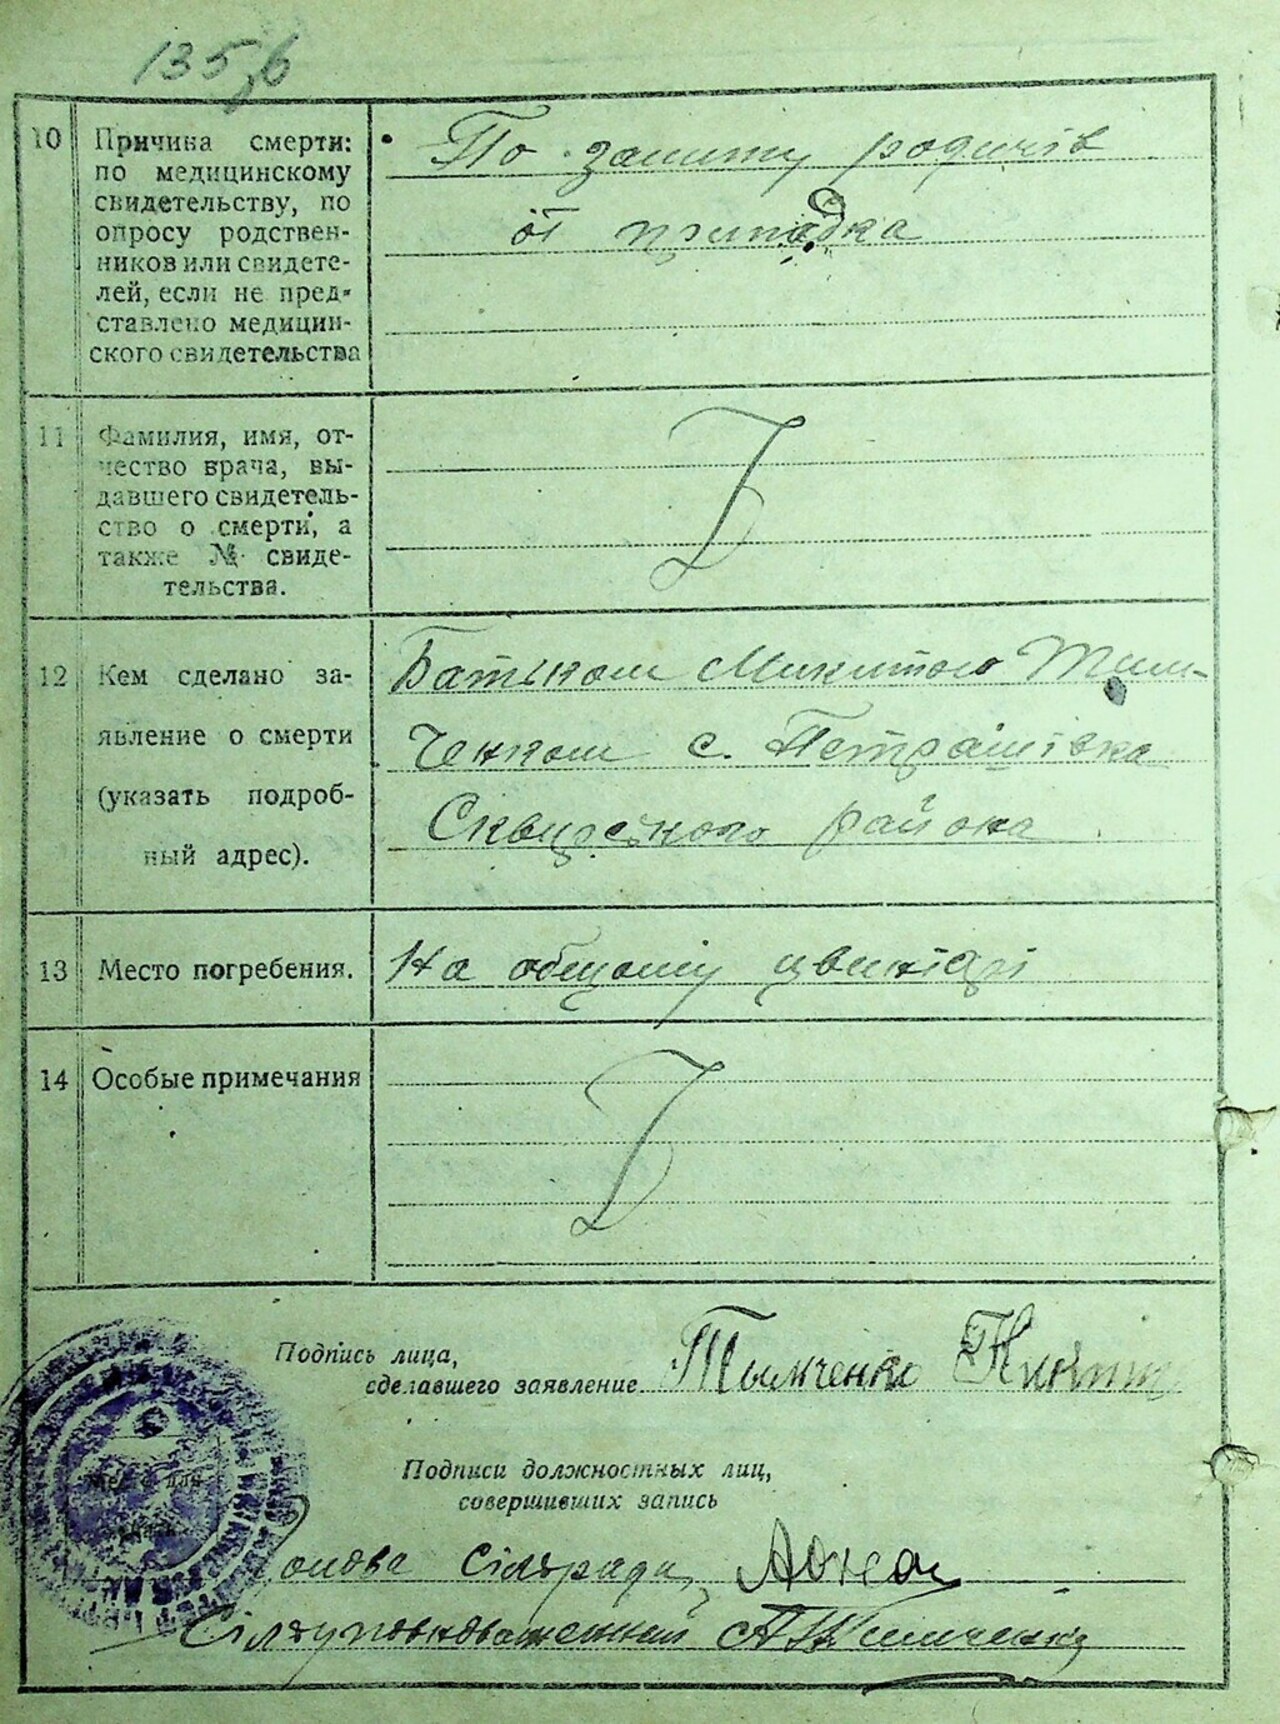 135
10 Причина смерти: по медицинскому свидетельству, по опросу родствен-ников или свидете-лей, если не пред-ставлено медицин-ского свидетельства
По родичів
от припадка
11 Фамилия, имя, от-чество врача, вы-давшего свидетель-ство о смерти, а также № свиде-тельства.
Z
12 Кем сделано за-явление о смерти (указать подроб-ный адрес).
Батьком Микитою Тим-
ченком с. Петрашівка
Сквирского района
13 Место погребения.
На общому цвинтарі
14 Особые примечания
Z
Подпись лица,
сделавшего заявление Тымченко
Подписи должностных лиц,
совершивших запись
Голова Сільради
Сілхуповноваженный